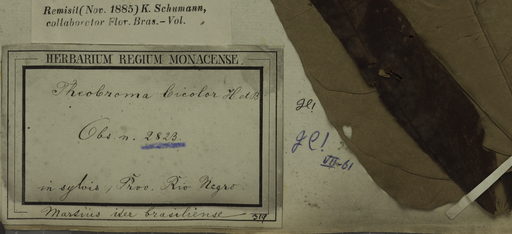 Remisit (Nov. 1885) K. Schumann,
collaborator Flor. Bras. - Vol.
HERBARIUM REGIUM MONACENSE.
Theobroma bicolor H et B
Obs n. 2823.
in sylvis, Prov. Rio Negro
Martius iter brasiliense
ge!
ge!
VII-61